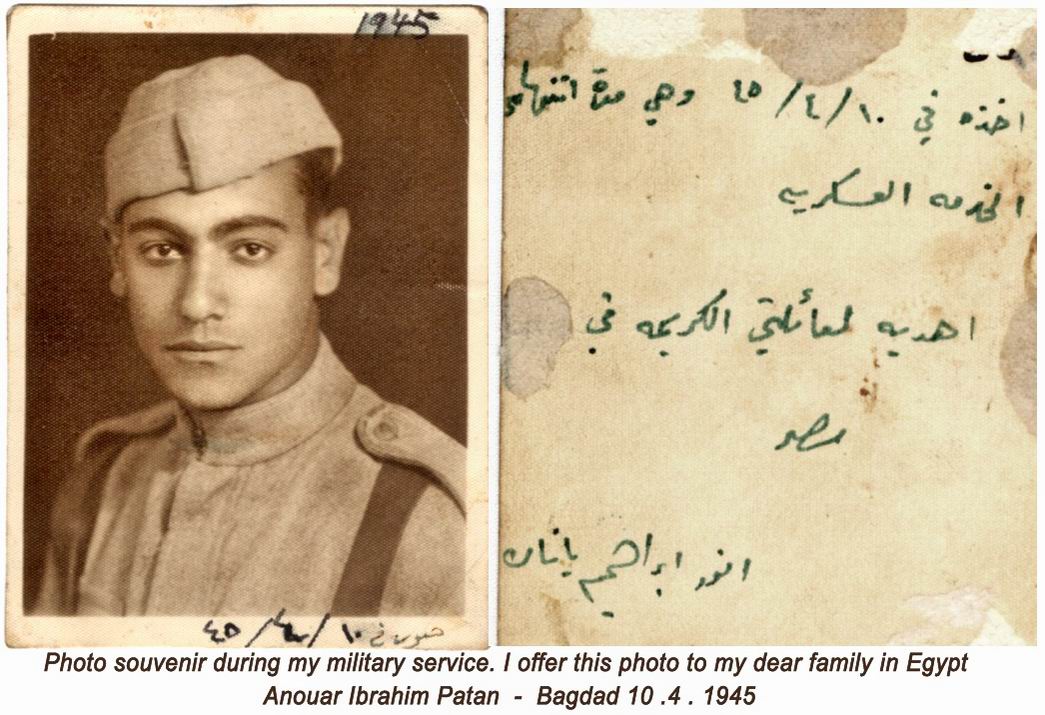 1945
في ١٠/٤/٤٥
اخذه في ١٠/٤/٤٥ وهي مدة
الخدمه العسكريه
اهديه لعائلتي الكريمه في
مصر
انور ابراهيم باتان
Photo souvenir during my military service. I offer this photo to my dear family in Egypt
Anouar Ibrahim Patan - Bagdad 10 .4 . 1945